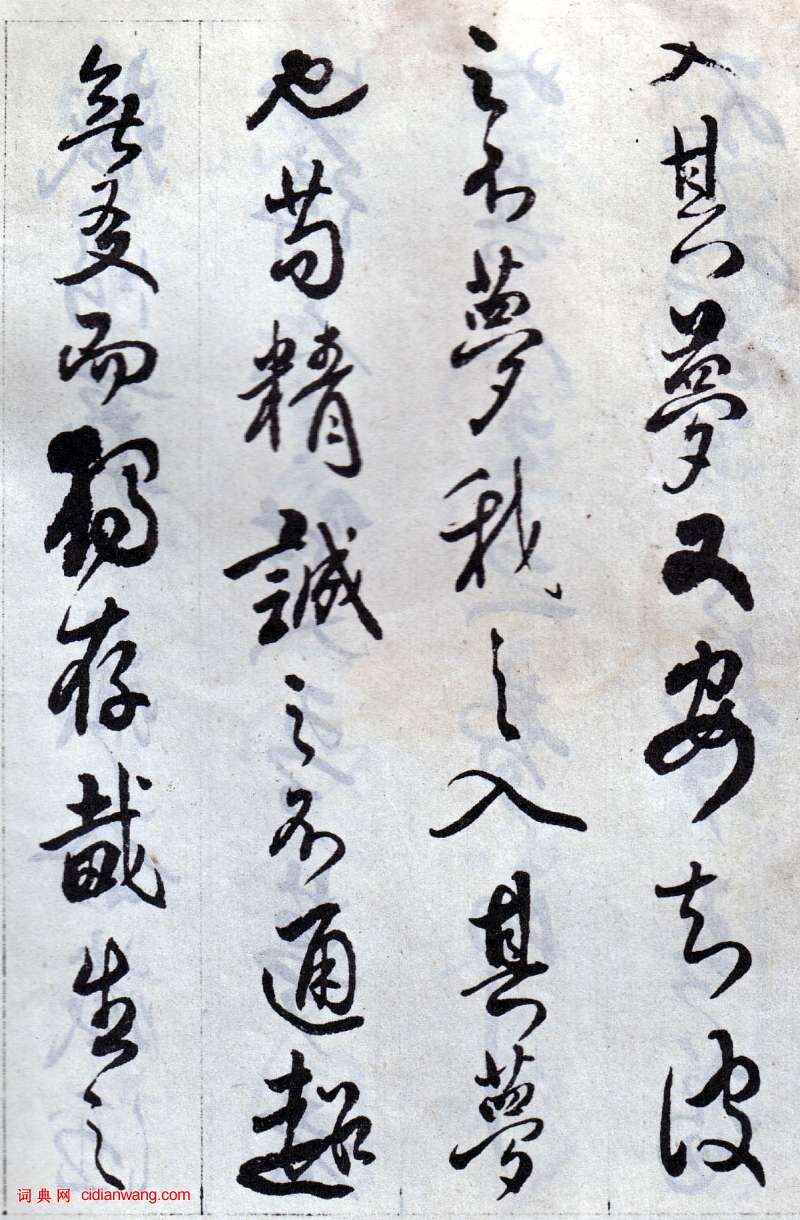 入其夢又安知彼
之不夢我之入其夢
也苟精誠之不通超
無友而獨存哉生之
词典网 cidianwang.com